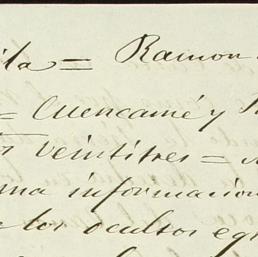 ila = Ramon
= Cuencamé y
veintitres =
ma informacion
los ocultos